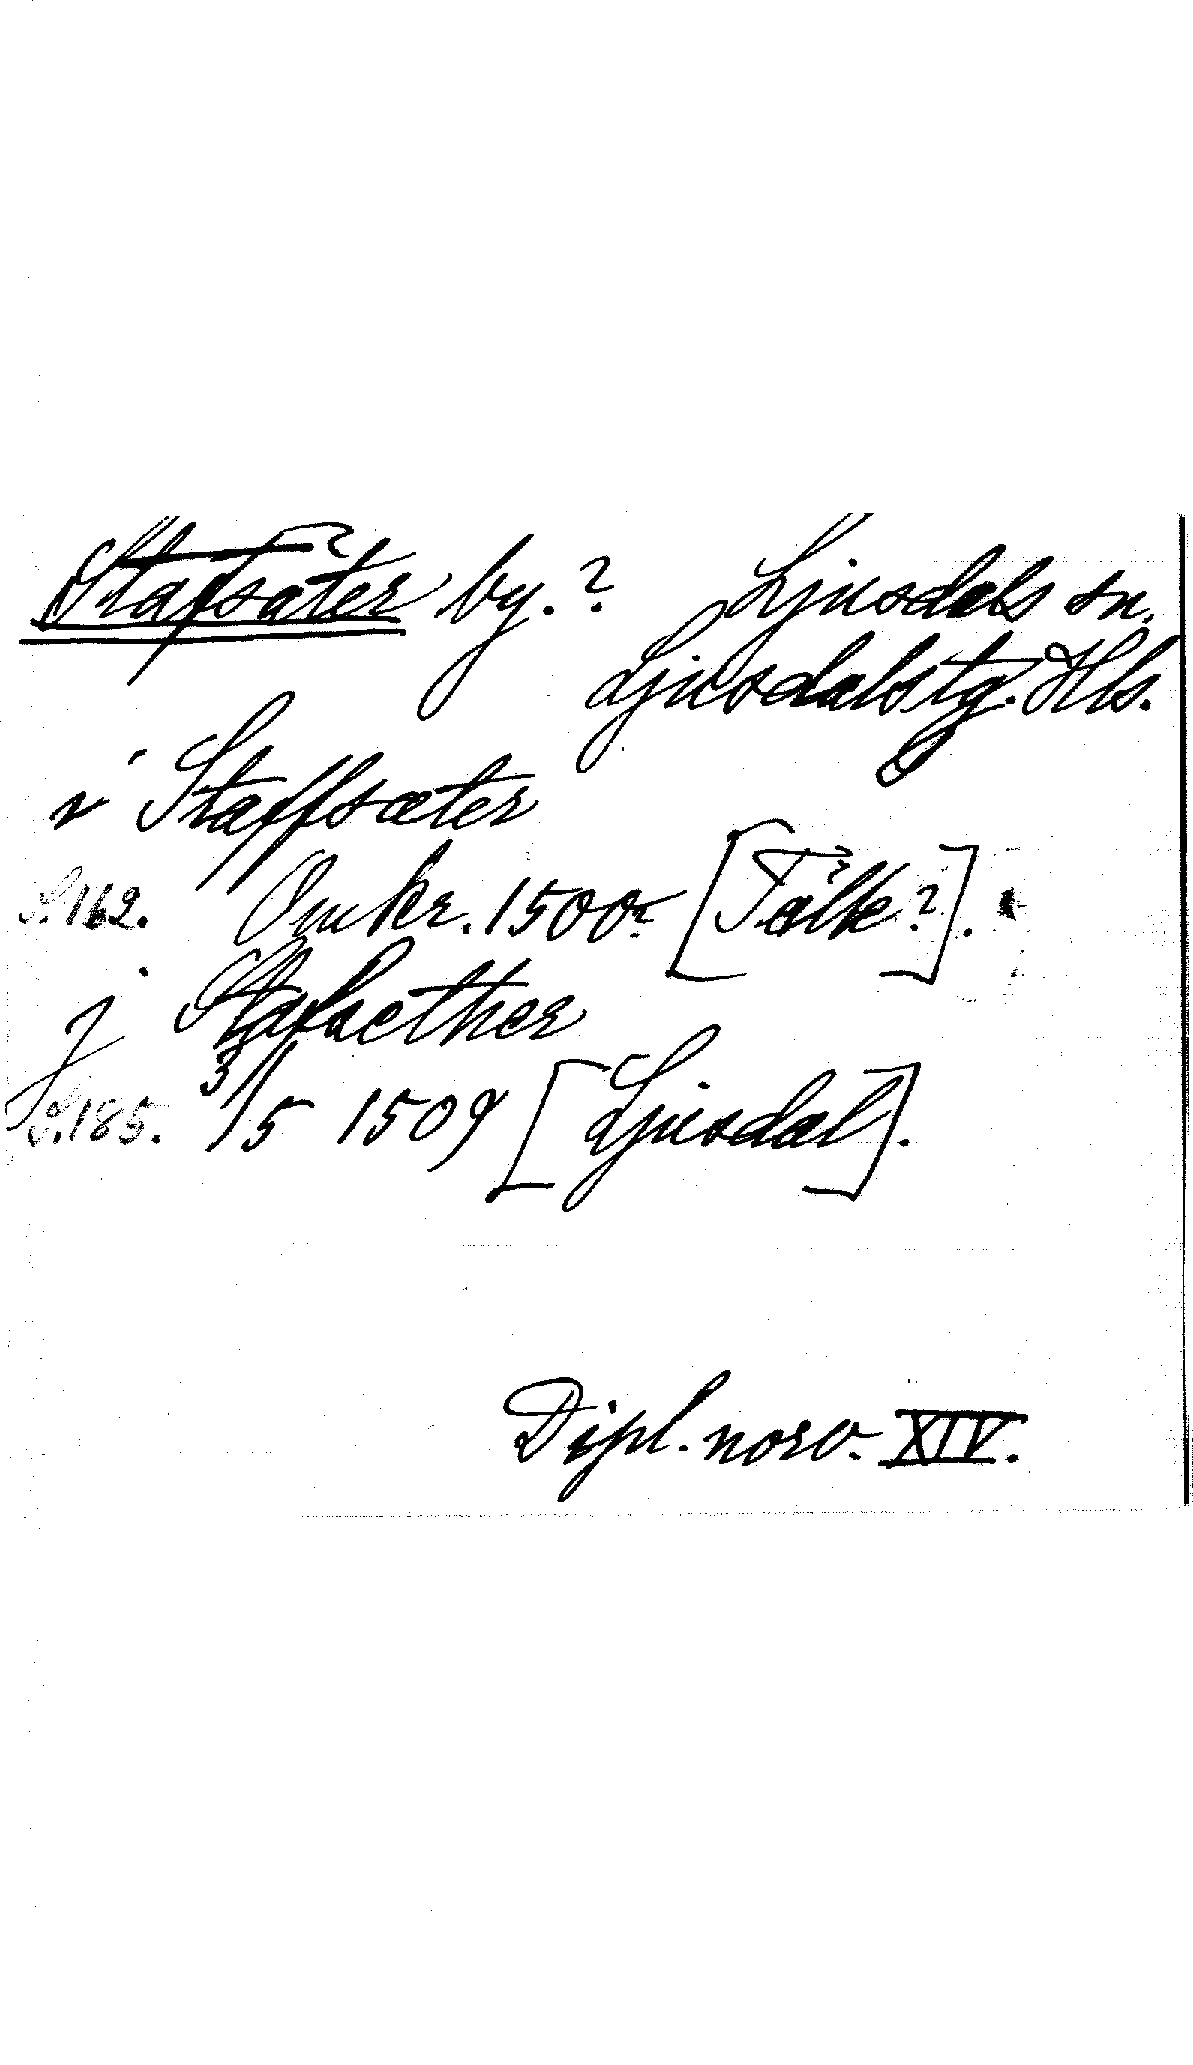 Stafsäter by.? Ljusdals sn.
Ljusdalstg. Hls.
i Staffsæter
S. 162. Omkr. 1500 [Tälk?].
j Stafsether
S. 185. 3/5 1509 [Ljusdal].
Dipl. norv. XIV.